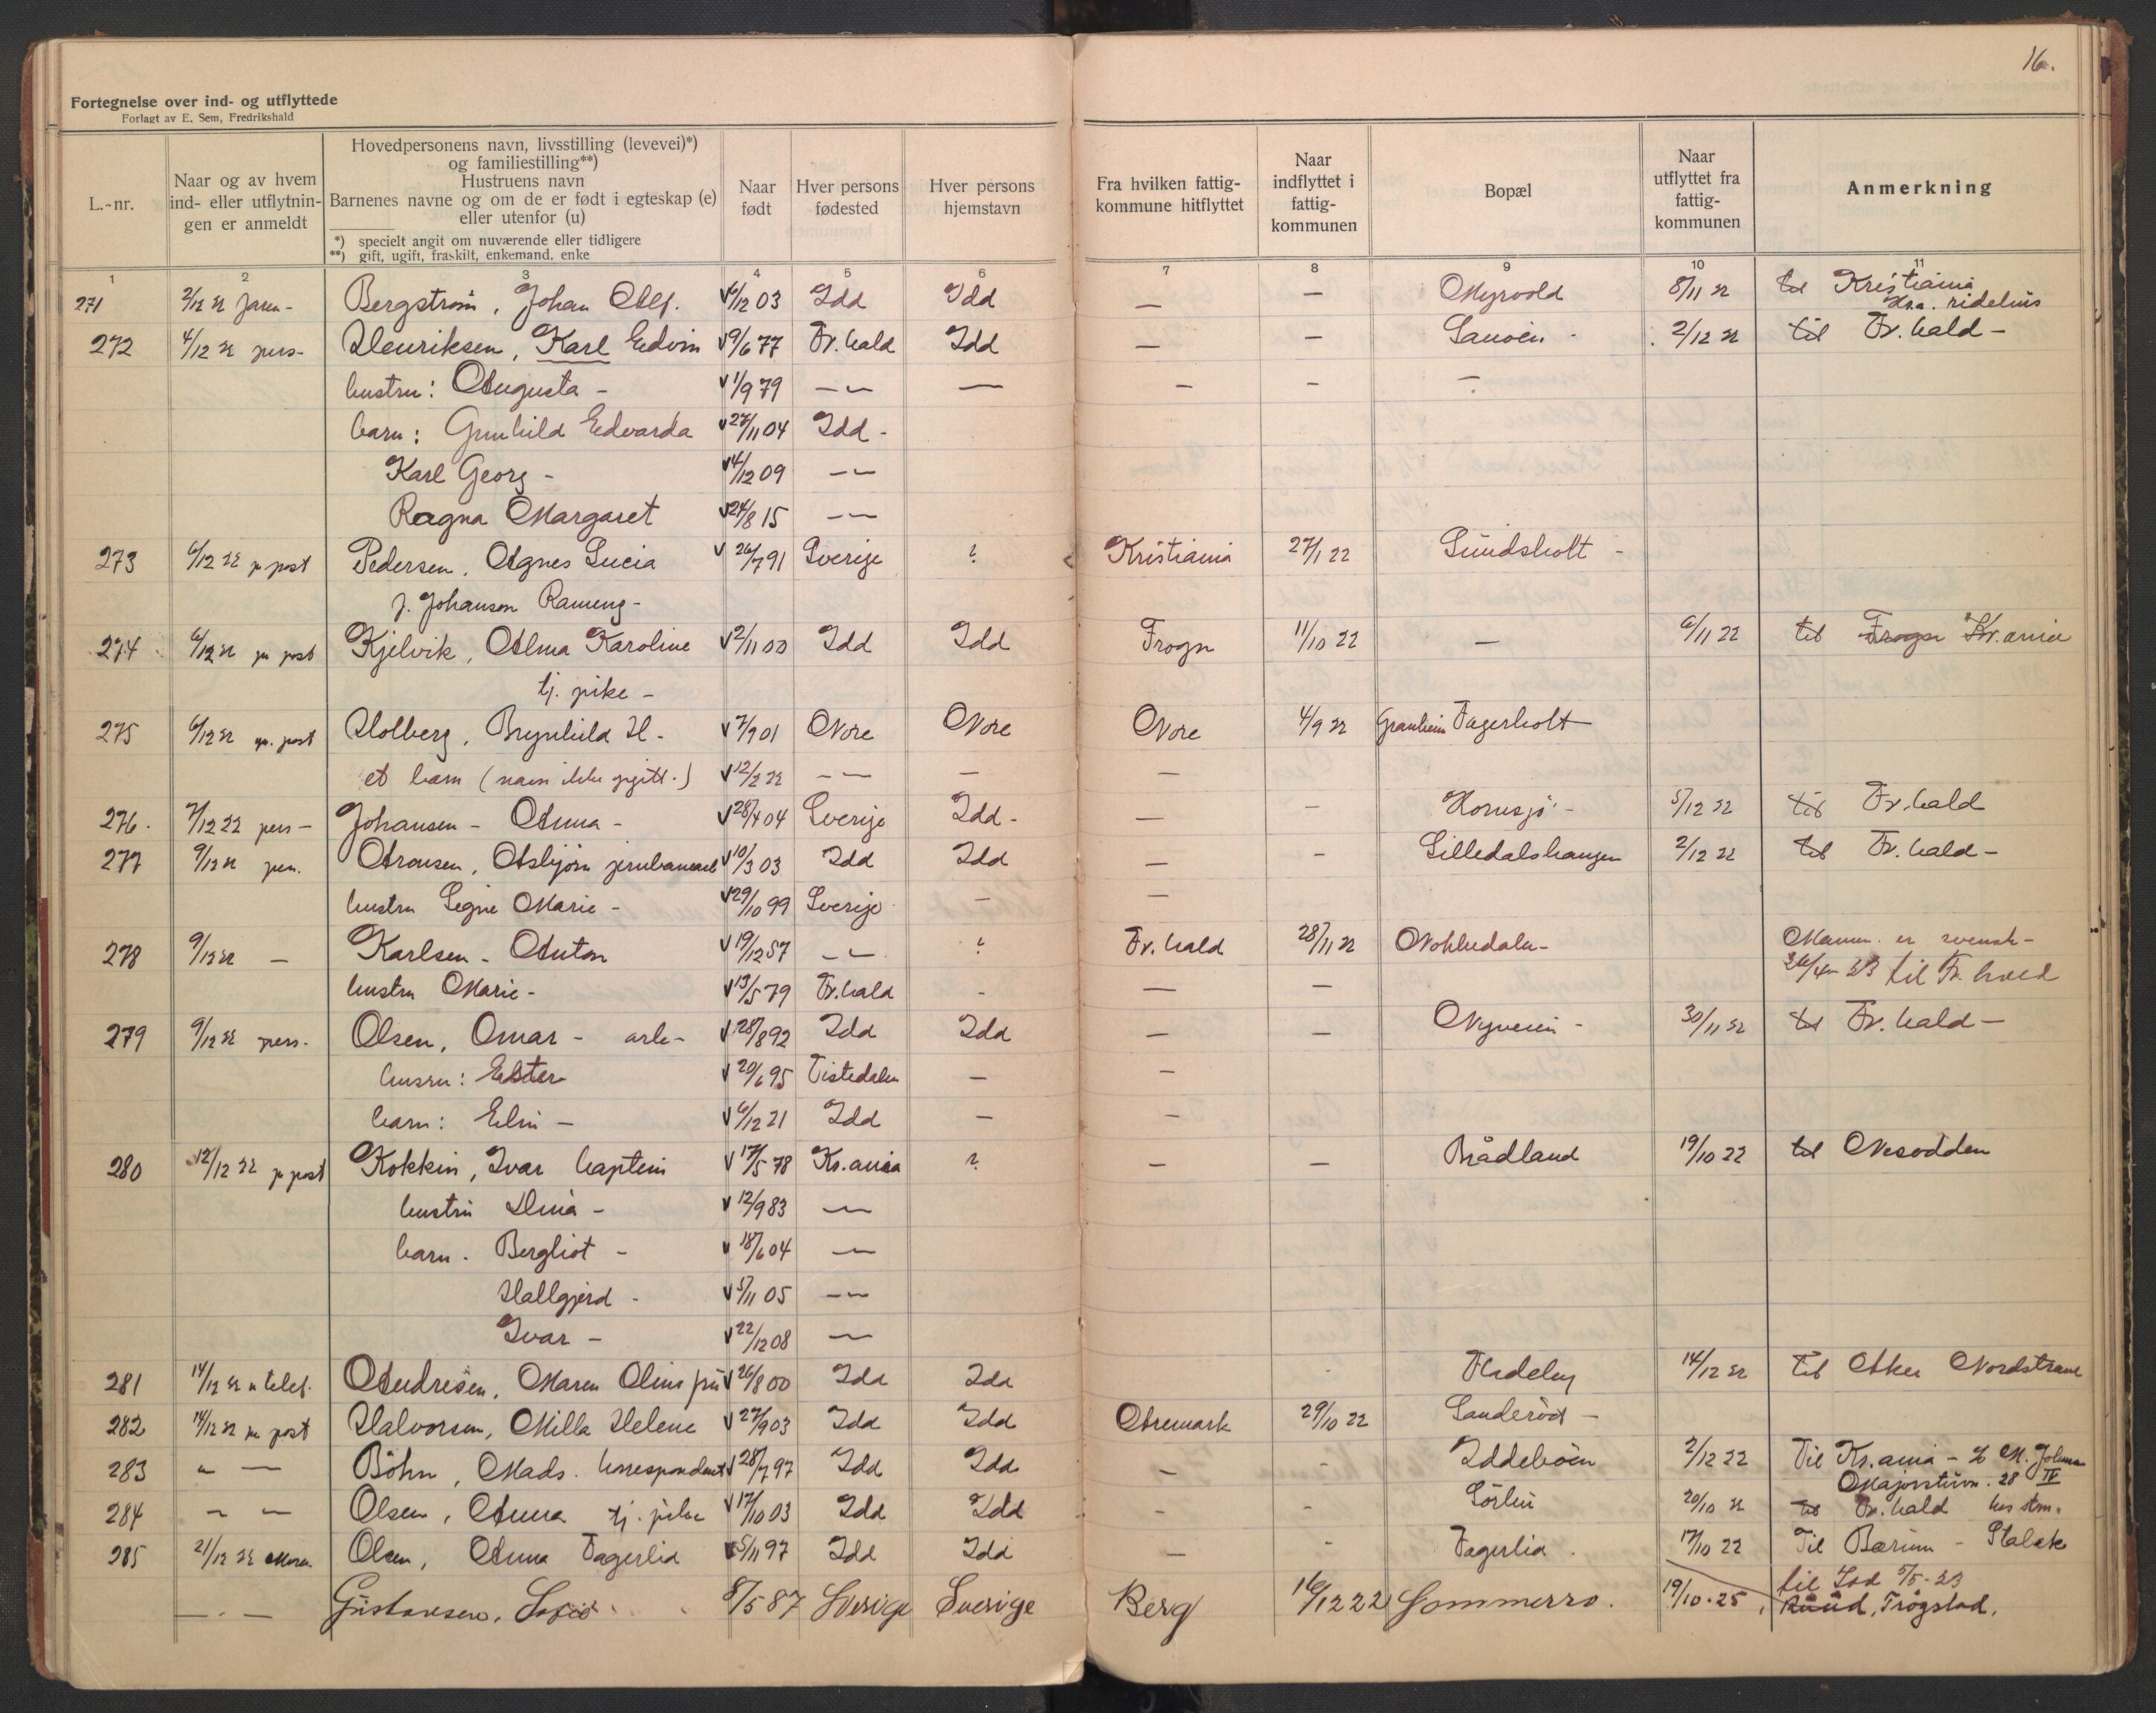 16.
Fortegnelse over ind- og utflyttede
Forlagt av E. Sem, Fredrikshald
L.-nr.
Naar og av hvem ind- eller utflytnin- gen er anmeldt
Hovedpersonens navn, livsstilling (levevei)*)
og familiestilling**)
Hustruens navn
Barnenes navne og om de er født i egteskap (e)
eller utenfor (u)
*) specielt angit om nuværende eller tidligere
**) gift, ugift, fraskilt, enkemand, enke
Naar født
Hver persons fødested
Hver persons hjemstavn
Fra hvilken fattig- kommune hitflyttet
Naar indflyttet i fattig- kommunen
Bopæl
Naar utflyttet fra fattig- kommunen
Anmerkning
1 2 3 4 5 6 7 8 9 10 11
271 2/12 22 Bergström, Johan Alf. 4/12 03 Idd Idd — — Myrvold 8/11 22 til Kristiania
272 4/12 22 pers- Henriksen, Karl Edvin 9/6 77 Fr.hald Idd — — 2/12 22 til Fr.hald -
hustru: Augusta - 1/9 79 — — — — —
barn: Gunhild Edvarda 27/11 04 Idd -
Karl Georg - 4/12 09 —
Ragna Margaret 24/8 15 —
273 6/12 22 pr post Pedersen, Agnes Lucia 26/7 91 Sverige ? Kristiania 27/1 22 Sundsholt -
f. Johanson Rameng-
274 6/12 22 pr post Kjelvik, Alma Karoline 2/11 00 Idd Idd Frogn 11/10 22 — 6/11 22 til Frogn Kr.ania
tj. pike -
275 6/12 22 pr. post Holberg, Brynhild H. 7/9 01 Nore Nore Nore 4/9 22 Granheim Fagerholt
et barn (navn ikke opgitt.) 12/2 22 — — —
276. 7/12 22 pers - Johansen - Anna - 28/4 04 Sverige Idd - — - Hornsjö - 5/12 22 til Fr.hald
277 9/12 22 pers. Aronsen, Asbjörn jernbanearb 10/3 03 Idd Idd — - Lilledalshaugen 2/12 22 til Fr.hald -
hustru Signe Marie - 29/10 99 Sverige - —
278 9/12 22 — Karlsen - Anton 19/12 57 — ? Fr.hald 28/11 22 Nokkedalen - er svensk -
26/4 - 23 til Fr.hald
hustru Marie - 13/5 79 Fr.hald - — —
279 9/12 22 pers. Olsen, Omar - arb- 28/8 92 Idd Idd — — Nyveien - 30/11 22 til Fr.hald -
husru: Ester 20/6 95 Tistedalen — -
barn: Elin - 6/12 21 Idd — -
280 12/12 22 pr post Kokkin, Ivar kaptein 17/5 78 Kr.ania ? — — Brådland 19/10 22 til Nesodden
hustru Dina - 12/9 83 —
barn. Bergliot - 18/6 04 —
Hallgjerd - 5/11 05 —
Ivar - 22/12 08 —
281 14/12 22 telef. Andresen, Maren Oline 26/8 00 Idd Idd - Fladeby 14/12 22 til Aker Nordstrand
282 14/12 22 pr post Halvorsen, Milla Helene 27/9 03 Idd Idd Aremark 29/10 22 Sanderöd -
283 " — Böhn, Mads. korrespondent 28/7 97 Idd Idd — - Iddeböen 2/12 22 Til Kr.ania -
Majorstuvn. 28 IV
284 - - Olsen, Anna tj. pike 17/10 03 Idd Idd - - Sörlie 20/10 22 til Fr.hald
285 21/12 22 Olsen, Anna Fagerlia 5/11 97 Idd Idd — - Fagerlia. 17/10 22 Til Bærum -
til Idd 5/5 - 23
—.— Gustavsen, Sofie 8/5 87 Sverige Sverige Berg 16/12 22 Sommerro. 19/10 - 25, Ruud, Trögstad.